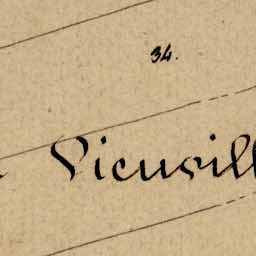 34.
Vieuvill